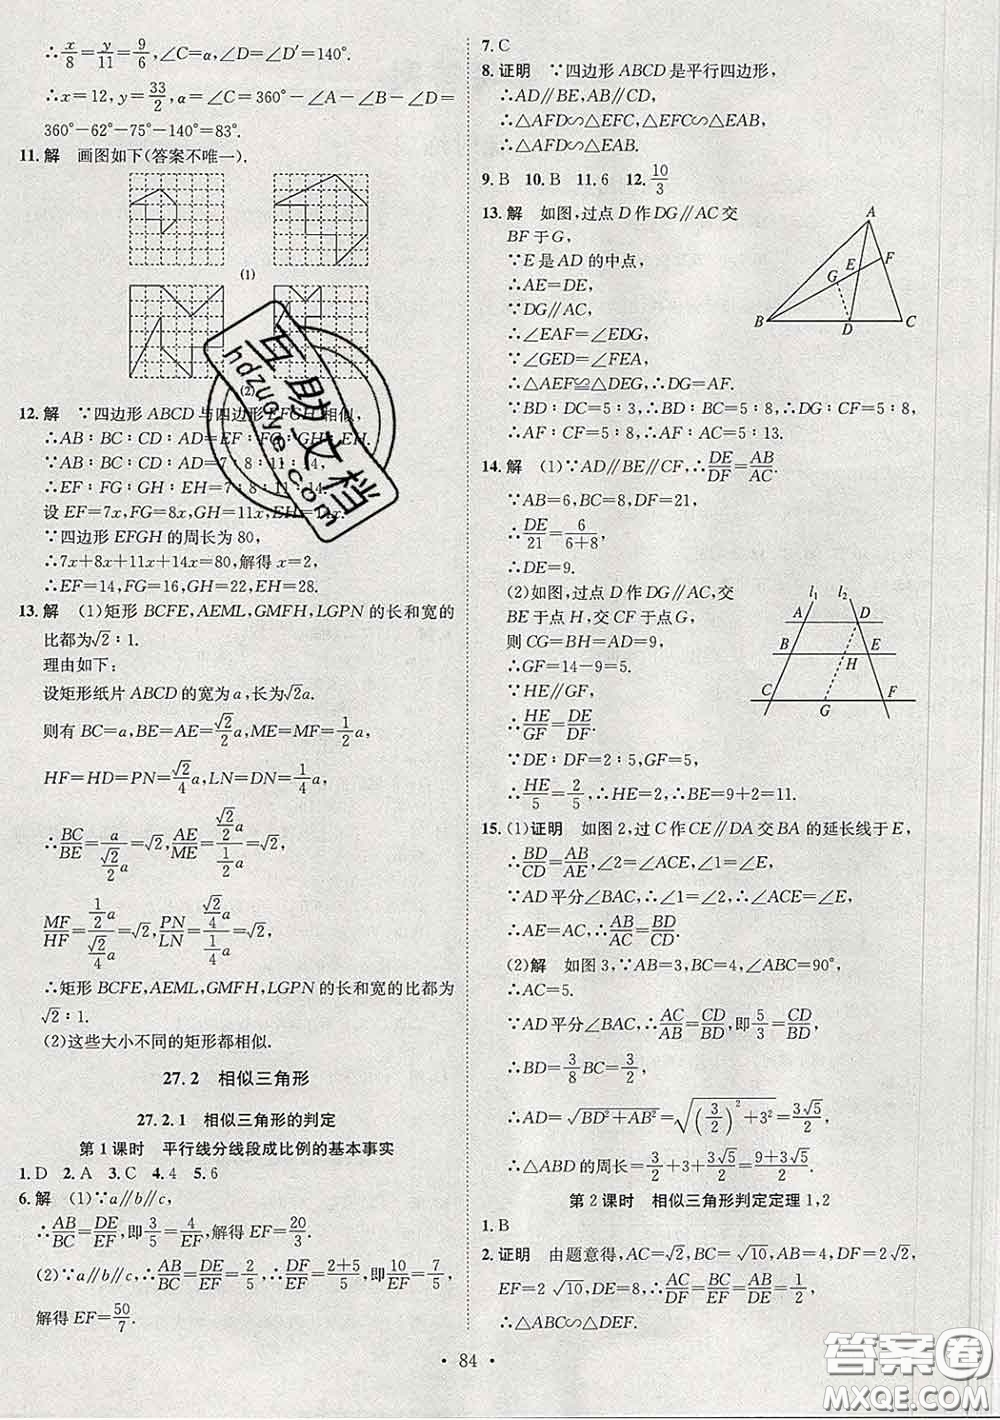 ∴x/8=y/11=9/6,∠C=α,∠D=∠D′=140°.
∴x=12,y=33/2,α=∠C=360°−∠A−∠B−∠D=
360°−62°−75°−140°=83°.
11.解 画图如下(答案不唯一).
(1)
(2)
12.解 ∵四边形ABCD与四边形EFGH相似,
∴AB∶BC∶CD∶AD=EF∶FG∶GH∶EH.
∵AB∶BC∶CD∶AD=7∶8∶11∶14,
∴EF∶FG∶GH∶EH=7∶8∶11∶14.
设EF=7x,FG=8x,GH=11x,EH=14x.
∵四边形EFGH的周长为80,
∴7x+8x+11x+14x=80,解得x=2,
∴EF=14,FG=16,GH=22,EH=28.
13.解 (1)矩形BCFE,AEML,GMFH,LGPN的长和宽的
比都为√2∶1.
理由如下:
设矩形纸片ABCD的宽为a,长为√2a.
则有BC=a,BE=AE=√2/2a,ME=MF=1/2a,
HF=HD=PN=√2/4a,LN=DN=1/4a.
∴BC/BE=a/(√2/2a)=√2,AE/ME=(√2/2a)/(1/2a)=√2,
MF/HF=(1/2a)/(√2/4a)=√2,PN/LN=(√2/4a)/(1/4a)=√2,
∴矩形BCFE,AEML,GMFH,LGPN的长和宽的比都为
√2∶1.
(2)这些大小不同的矩形都相似.
27.2 相似三角形
27.2.1 相似三角形的判定
第1课时 平行线分线段成比例的基本事实
1.D 2.A 3.C 4.4 5.6
6.解 (1)∵a∥b∥c,
∴AB/BC=DE/EF,即3/5=4/EF,解得EF=20/3.
(2)∵a∥b∥c,∴AB/BC=DE/EF=2/5,∴DF/EF=(2+5)/5,即10/EF=7/5,
解得EF=50/7.
7.C
8.证明 ∵四边形ABCD是平行四边形,
∴AD∥BE,AB∥CD,
∴△AFD∽△EFC,△EFC∽△EAB,
∴△AFD∽△EAB.
9.B 10.B 11.6 12.10/3
13.解 如图,过点D作DG∥AC交
BF于G,
∵E是AD的中点,
∴AE=DE,
∵DG∥AC,
∴∠EAF=∠EDG,
∵∠GED=∠FEA,
∴△AEF≌△DEG,∴DG=AF.
∵BD∶DC=5∶3,∴BD∶BC=5∶8,∴DG∶CF=5∶8,
∴AF∶CF=5∶8,∴AF∶AC=5∶13.
A
B
C
D
E
F
G
14.解 (1)∵AD∥BE∥CF,∴DE/DF=AB/AC.
∵AB=6,BC=8,DF=21,
∴DE/21=6/(6+8),
∴DE=9.
(2)如图,过点D作DG∥AC,交
BE于点H,交CF于点G,
则CG=BH=AD=9,
∴GF=14−9=5.
∵HE∥GF,
∴HE/GF=DE/DF.
∵DE∶DF=2∶5,GF=5,
∴HE/5=2/5,∴HE=2,∴BE=9+2=11.
l₁ l₂
A D
B H E
C G F
15.(1)证明 如图2,过C作CE∥DA交BA的延长线于E,
∴BD/CD=AB/AE,∠2=∠ACE,∠1=∠E,
∵AD平分∠BAC,∴∠1=∠2,∴∠ACE=∠E,
∴AE=AC,∴AB/AC=BD/CD.
(2)解 如图3,∵AB=3,BC=4,∠ABC=90°,
∴AC=5.
∵AD平分∠BAC,∴AC/AB=CD/BD,即5/3=CD/BD,
∴BD=3/8BC=3/2,
∴AD=√(BD²+AB²)=√((3/2)²+3²)=3√5/2,
∴△ABD的周长=3/2+3+3√5/2=(9+3√5)/2.
第2课时 相似三角形判定定理1,2
1.B
2.证明 由题意得,AC=√2,BC=√10,AB=4,DF=2√2,
EF=2√10,DE=8,∴AC/DF=BC/EF=AB/DE=1/2,
∴△ABC∽△DEF.
• 84 •
互助文档
hdzuoye.com
答案圈
MXQE.COM